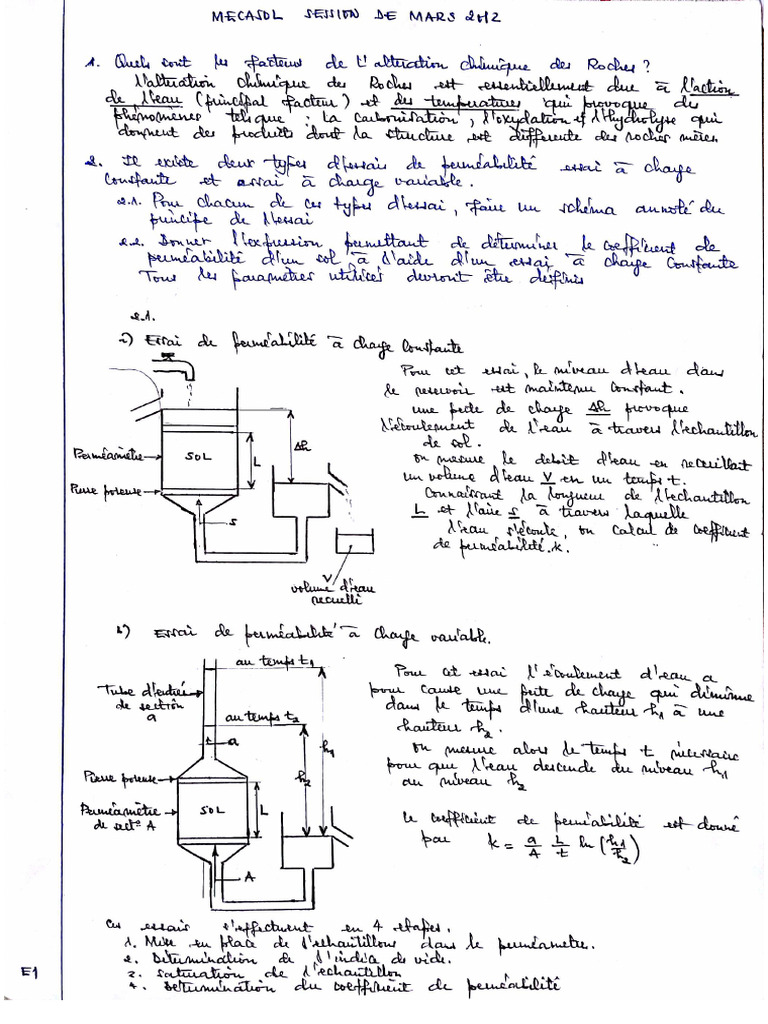 MECASOL SESSION DE MARS 2012
1. Quels sont les facteurs de l'altération chimique des Roches ?
L'altération chimique des Roches est essentiellement due à l'action
de l'eau (principal facteur) et des températures qui provoque des
phénomènes telsque : la carbonisation, l'oxydation et l'Hydrolyse qui
donnent des produits dont la structure est differente des roches mères.
2. Il existe deux types d'essais de perméabilité essai à charge
Constante et essai à charge variable.
2.1. Pour chacun de ces types d'essai, faire un schéma annoté du
principe de l'essai
2.2. Donner l'expression permettant de déterminer le coefficient de
perméabilité d'un sol à l'aide d'un essai à charge Constante
Tous les paramètres utilisés devront être définis
2.1.
a) Essai de perméabilité à charge Constante
Pour cet essai, le niveau d'eau dans
le reservoir est maintenu constant.
une perte de charge Δh provoque
l'écoulement de l'eau à travers l'echantillon
de sol.
on mesure le debit d'eau en recueillant
un volume d'eau V en un temps t.
Connaissant la longueur de l'echantillon
L et l'aire s à travers laquelle
l'eau s'écoule, on calcul le coefficient
de perméabilité k.
Perméamètre
SOL
L
Δh
Pierre poreuse
s
V
volume d'eau
recueilli
b) Essai de perméabilité à charge variable.
au temps t1
Tube d'entrée
de section
a
au temps t2
a
h1
h2
Pierre poreuse
Perméamètre
de sect° A
SOL
L
A
Pour cet essai l'écoulement d'eau a
pour cause une perte de charge qui diminue
dans le temps d'une hauteur h1 à une
hauteur h2.
on mesure alors le temps t nécessaire
pour que l'eau descende du niveau h1
au niveau h2
Le coefficient de perméabilité est donné
par k = a/A L/t ln (h1/h2)
Ces essais s'effectuent en 4 etapes.
1. Mise en place de l'echantillons dans le perméamètre.
2. Determination de l'indice de vide.
3. saturation de l'échantillon
4. Determination du coefficient de perméabilité
E1